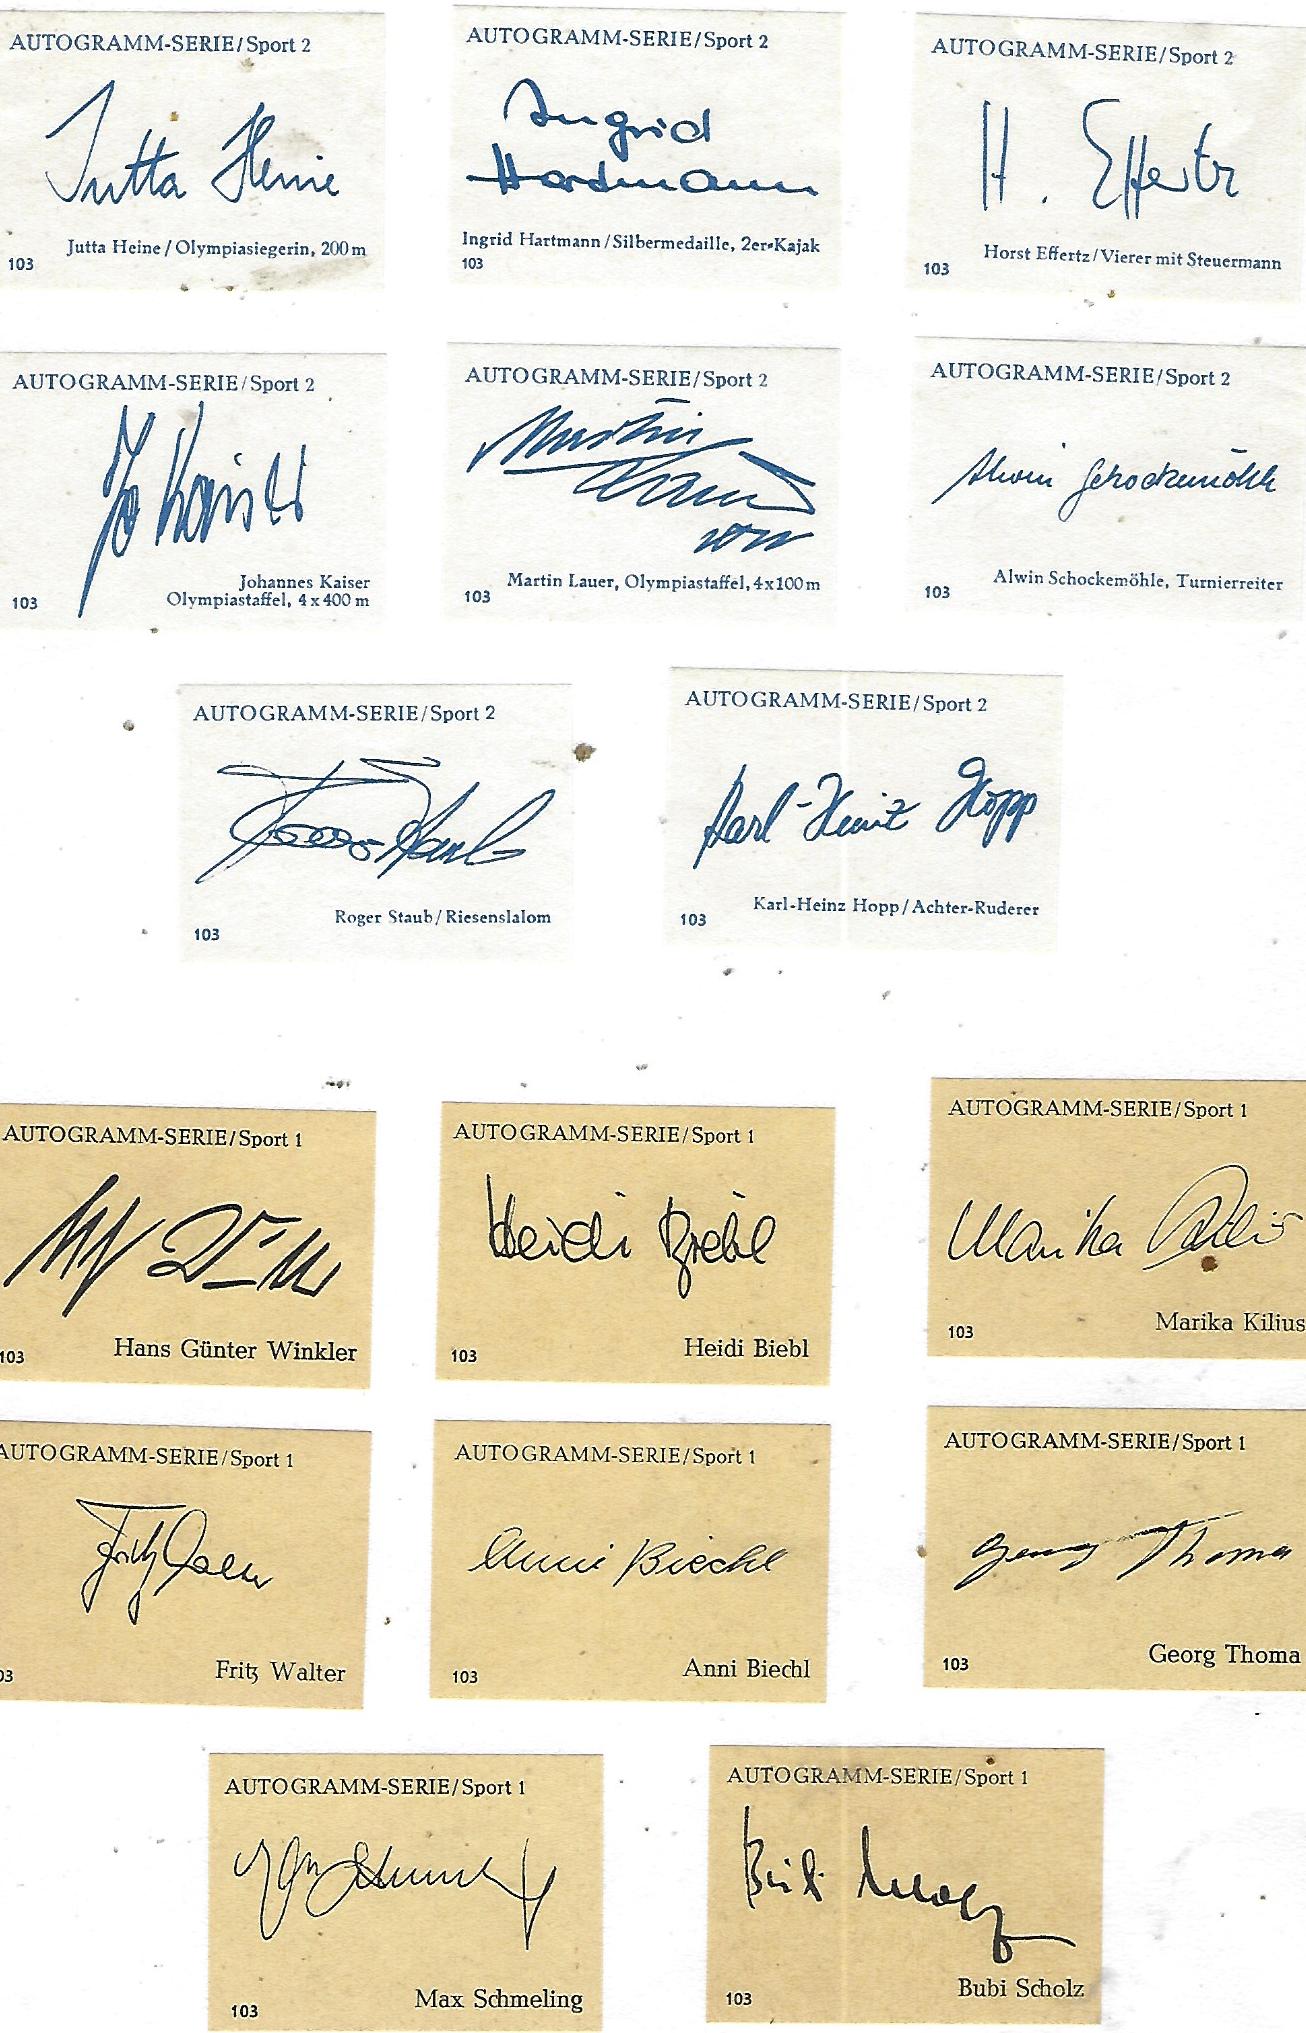 AUTOGRAMM-SERIE/Sport 2
Jutta Heine
Jutta Heine/Olympiasiegerin, 200 m
103
AUTOGRAMM-SERIE/Sport 2
Ingrid
Hartmann
Ingrid Hartmann/Silbermedaille, 2er-Kajak
103
AUTOGRAMM-SERIE/Sport 2
H. Effertz
Horst Effertz/Vierer mit Steuermann
103
AUTOGRAMM-SERIE/Sport 2
Jo Kaiser
Johannes Kaiser
Olympiastaffel, 4 x 400 m
103
AUTOGRAMM-SERIE/Sport 2
Martin
Lauer
Martin Lauer, Olympiastaffel, 4x100 m
103
AUTOGRAMM-SERIE/Sport 2
Alwin Schockemöhle
Alwin Schockemöhle, Turnierreiter
103
AUTOGRAMM-SERIE/Sport 2
Roger Staub
Roger Staub/Riesenslalom
103
AUTOGRAMM-SERIE/Sport 2
Karl-Heinz Hopp
Karl-Heinz Hopp/Achter-Ruderer
103
AUTOGRAMM-SERIE/Sport 1
Hans Günter Winkler
103
AUTOGRAMM-SERIE/Sport 1
Heidi Biebl
Heidi Biebl
103
AUTOGRAMM-SERIE/Sport 1
Marika Kilius
Marika Kilius
103
AUTOGRAMM-SERIE/Sport 1
Fritz Walter
Fritz Walter
03
AUTOGRAMM-SERIE/Sport 1
Anni Biechl
Anni Biechl
103
AUTOGRAMM-SERIE/Sport 1
Georg Thoma
Georg Thoma
103
AUTOGRAMM-SERIE/Sport 1
Max Schmeling
Max Schmeling
103
AUTOGRAMM-SERIE/Sport 1
Bubi Scholz
Bubi Scholz
103